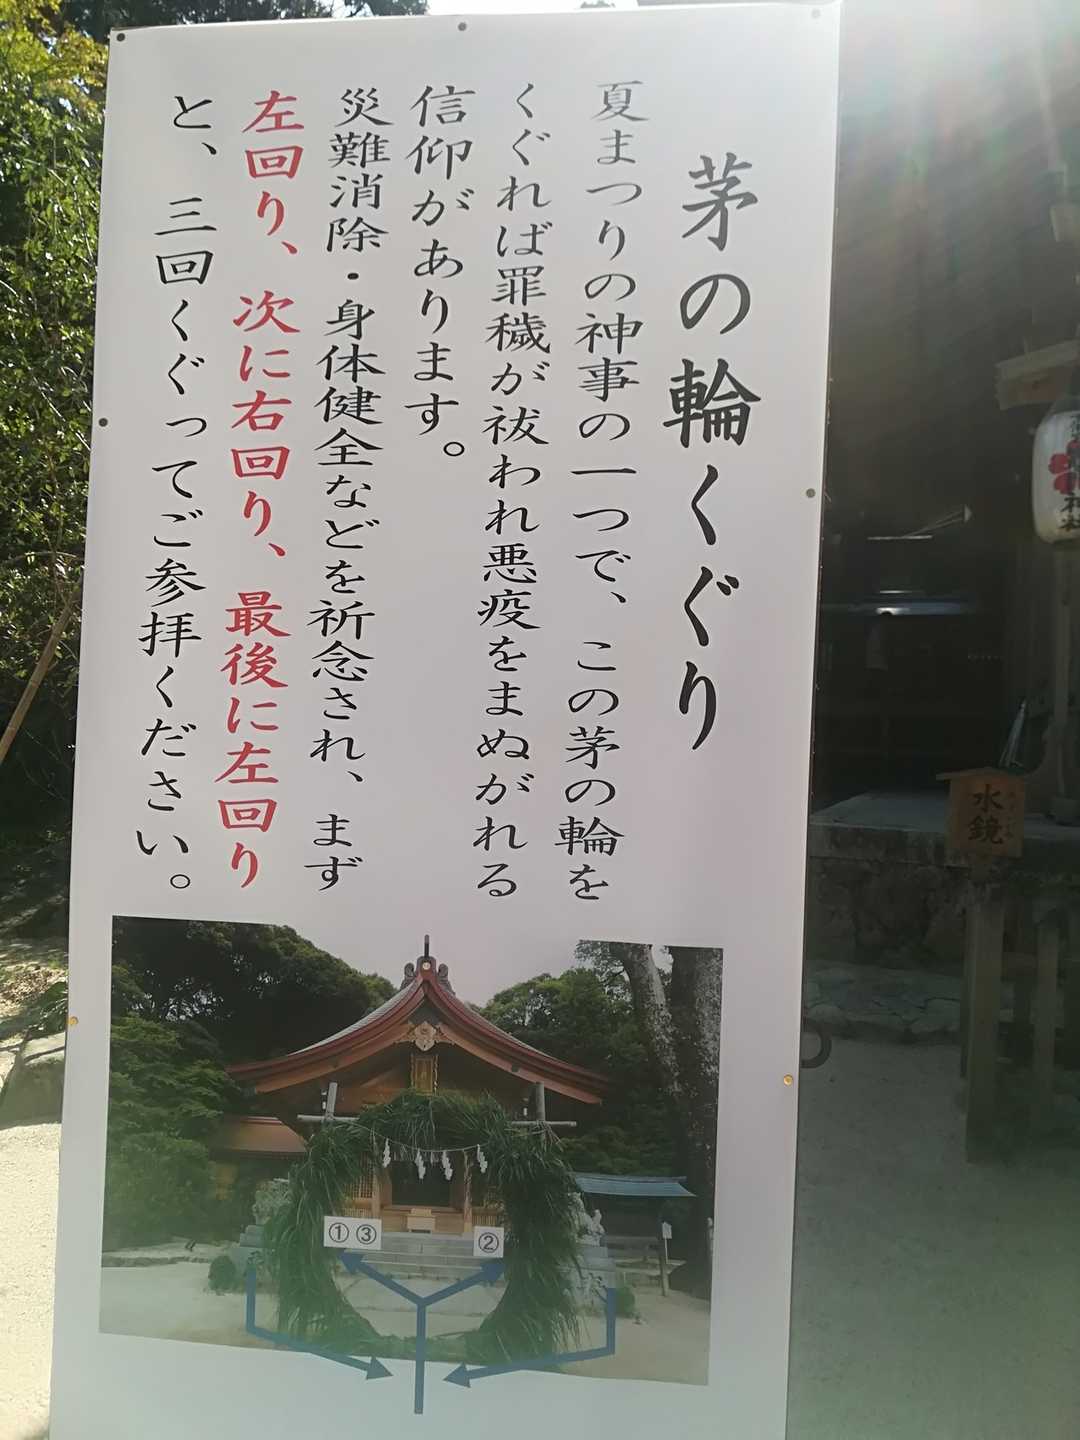 茅の輪くぐり
夏まつりの神事の一つで、この茅の輪を
くぐれば罪穢が祓われ悪疫をまぬがれる
信仰があります。
災難消除・身体健全などを祈念され、まず
左回り、次に右回り、最後に左回り
と、三回くぐってご参拝ください。
①③
②
水鏡